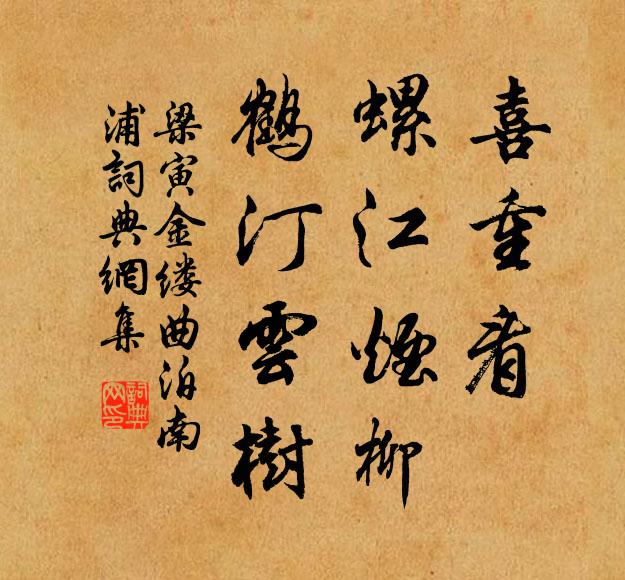 喜重看
螺江煙柳
鶴汀雲樹
梁寅金缕曲泊南
浦詞典網集
詞典
网印